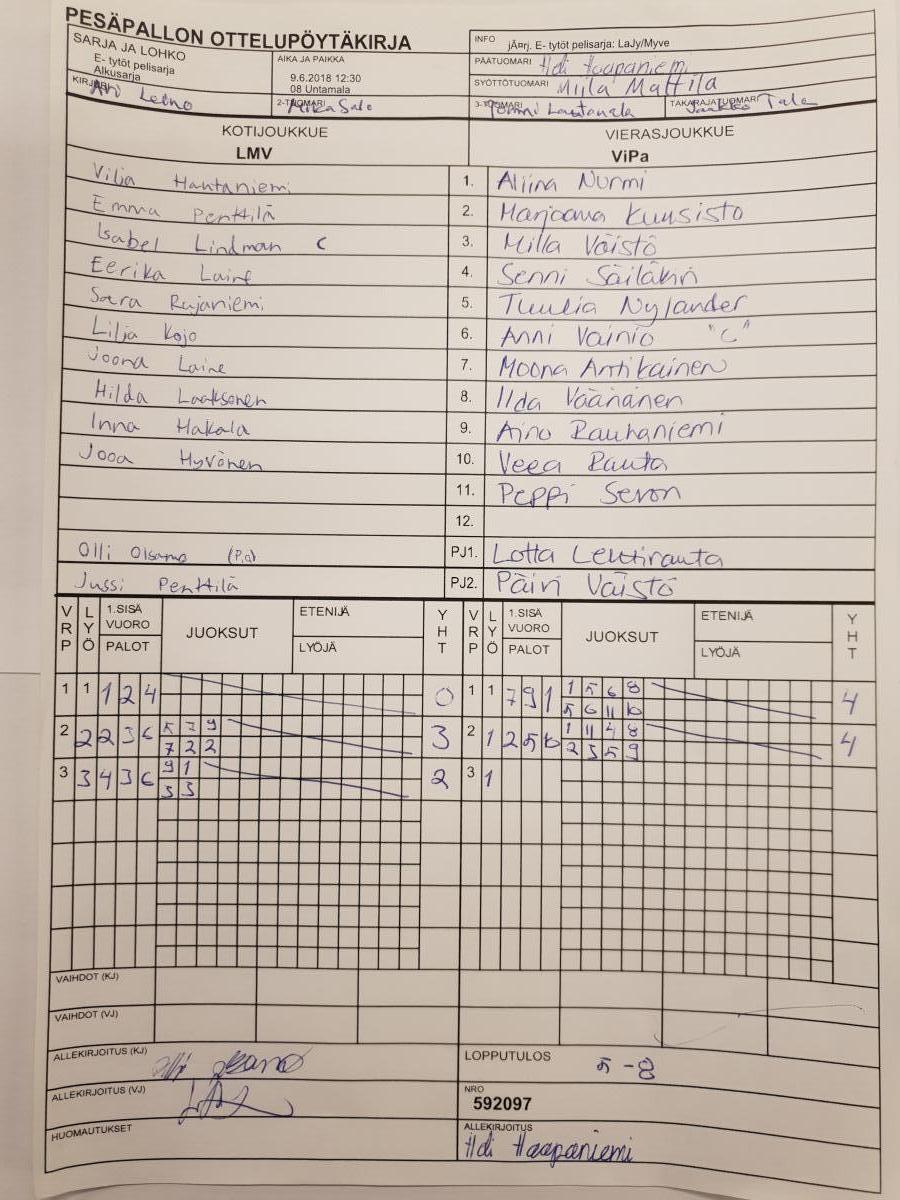 PESÄPALLON OTTELUPÖYTÄKIRJA
SARJA JA LOHKO
E- tytöt pelisarja
Alkusarja
AIKA JA PAIKKA
9.6.2018 12:30
08 Untamala
INFO jÃ¤rj. E- tytöt pelisarja: LaJy/Myve
PÄÄTUOMARI Haapaniemi
SYÖTTÖTUOMARI Miila Mattila
KIRJURI Leino
2-TUOMARI Salo
3-TUOMARI
TAKARAJATUOMARI Jaakko Tala
KOTIJOUKKUE VIERASJOUKKUE
LMV ViPa
Vilja Hantaniemi 1. Aliina Nurmi
Emma Penttilä 2. Marjaana Kuusisto
Isabel Lindman C 3. Milla Väistö
Eerika Laine 4. Senni Säiläkivi
Saara Rajaniemi 5. Tuulia Nylander
Lilja Kojo 6. Anni Vainio "C"
Joona Laine 7. Moona Antikainen
Hilda Laaksonen 8. Iida Väänänen
Inna Hakala 9. Aino Rauhaniemi
Jooa Hyvönen 10. Veea Rauta
11. Peppi Seron
12.
Olli (P.J) PJ1. Lotta
Jussi Penttilä PJ2. Päivi Väistö
VRP LYÖ 1.SISÄ VUORO PALOT JUOKSUT ETENIJÄ LYÖJÄ YHT VRP LYÖ 1.SISÄ VUORO PALOT JUOKSUT ETENIJÄ LYÖJÄ YHT
1 1 1 2 4 0 1 1 7 9 1 1 5 6 8 4
5 6 11 10
2 2 2 3 6 5 7 9 3 2 1 2 5 10 1 11 4 8 4
7 2 2 2 3 5 9
3 3 4 3 6 9 1 2 3 1
3 3
VAIHDOT (KJ)
VAIHDOT (VJ)
ALLEKIRJOITUS (KJ)
LOPPUTULOS 5 - 8
ALLEKIRJOITUS (VJ)
NRO
592097
HUOMAUTUKSET
ALLEKIRJOITUS
Haapaniemi